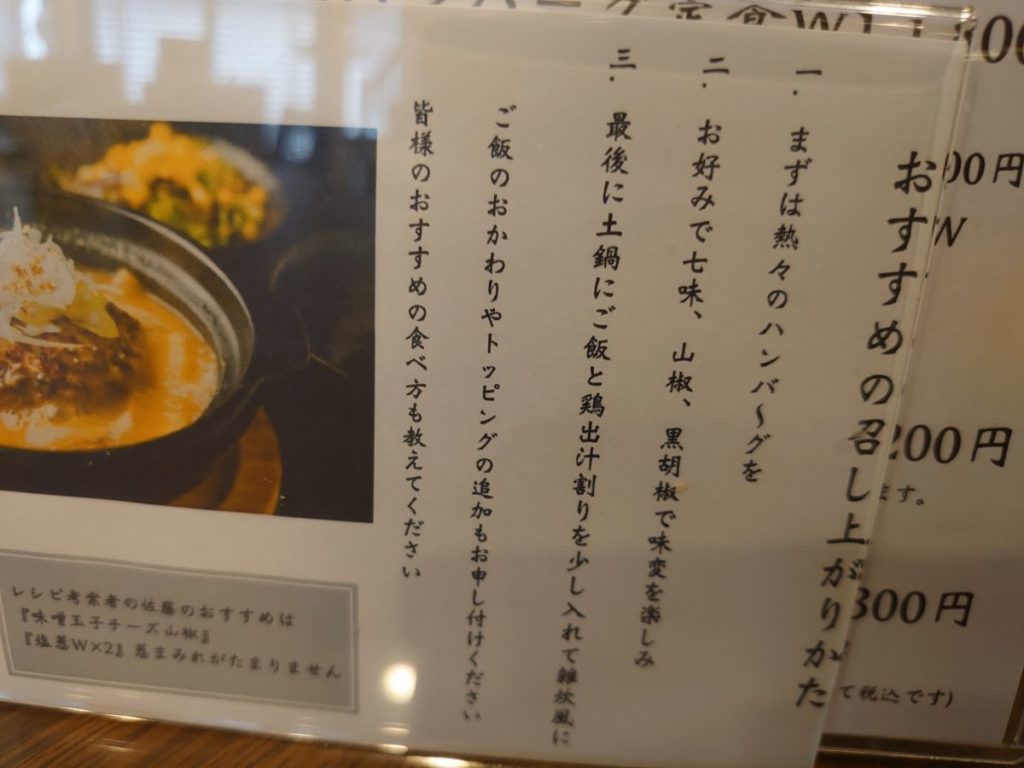 おすすめの召し上がりかた
一．まずは熱々のハンバ〜グを
二．お好みで七味、山椒、黒胡椒で味変を楽しみ
三．最後に土鍋にご飯と鶏出汁割りを少し入れて雑炊風に
ご飯のおかわりやトッピングの追加もお申し付けください
皆様のおすすめの食べ方も教えてください
レシピ考案者の佐藤のおすすめは
『味噌玉子チーズ山椒』
『塩葱W×2』葱まみれがたまりません
00円
W
200円
ます。
300円
て税込です)